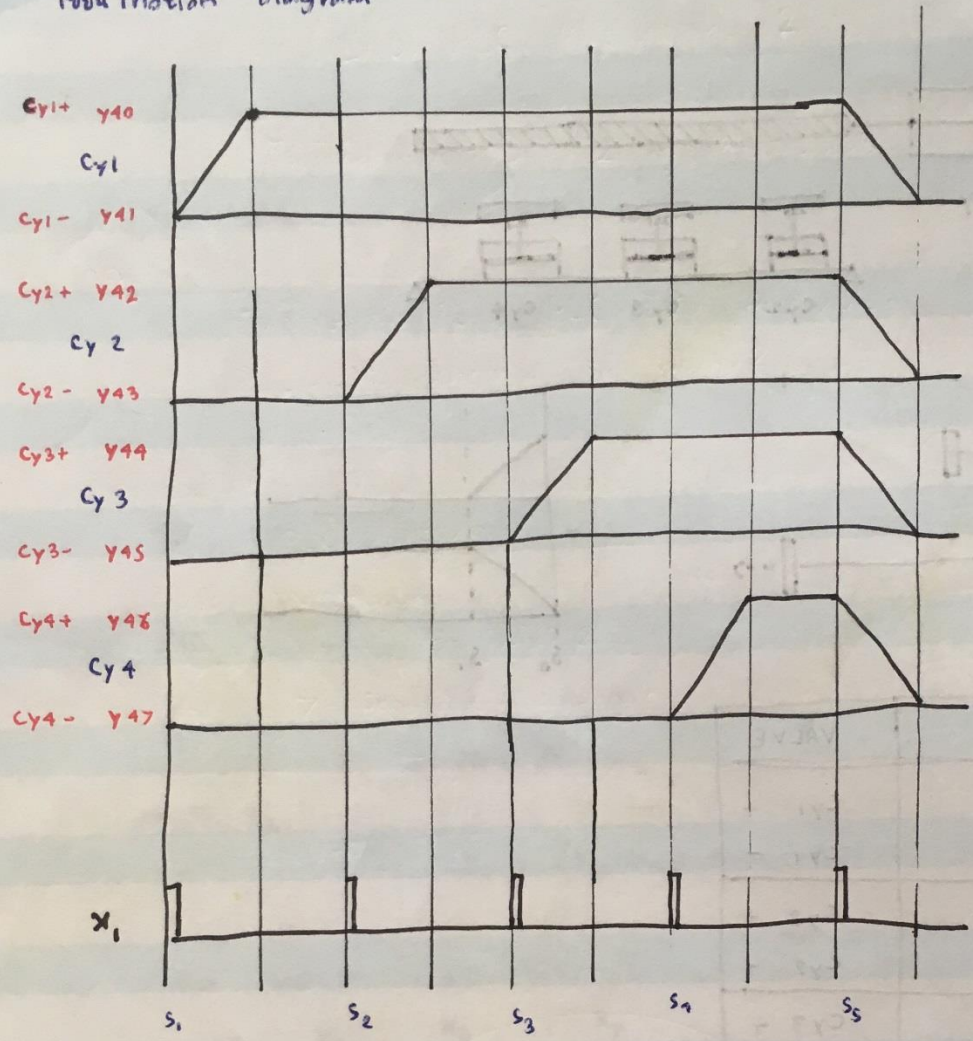 Diagram
Cy1+ Y40
Cy1
Cy1- Y41
Cy2+ Y42
Cy 2
Cy2- Y43
Cy3+ Y44
Cy 3
Cy3- Y45
Cy4+ Y46
Cy 4
Cy4- Y47
X1
S1 S2 S3 S4 S5